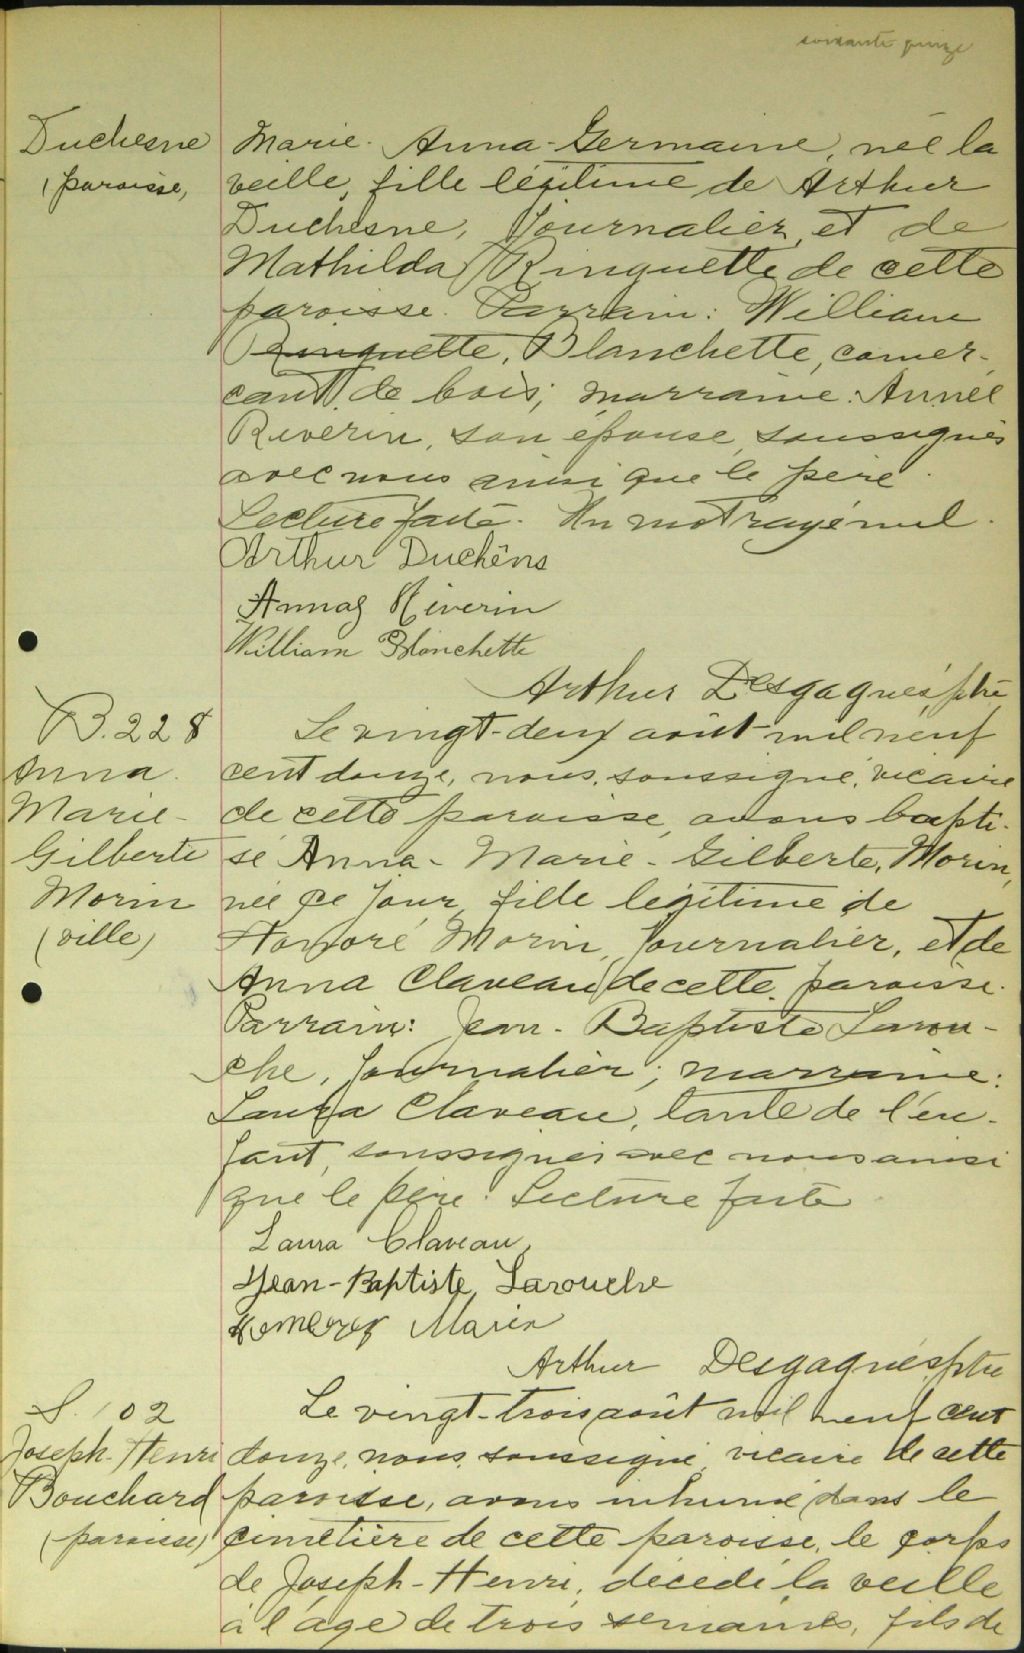 soixante quinze
Duchesne
(paroisse)
Marie-Anna-Germaine, née la
veille, fille légitime de Arthur
Duchesne, journalier, et de
Mathilda Ringuette de cette
paroisse. Parrain: William
Ringuette, Blanchette, comer-
cant de bois; marraine: Année
Riverin, son épouse, soussignés
avec nous ainsi que le père.
Lecture faite. Un mot rayé nul.
Arthur Duchêns
Riverin
William Blanchette
Arthur Desgagnés, ptre
B. 228
Anna
Marie-
Gilberte
Morin
(ville)
Le vingt-deux août mil neuf
cent douze, nous, soussigné, vicaire
de cette paroisse, avons bapti-
sé Anna-Marie-Gilberte, Morin,
née ce jour, fille légitime de
Honoré Morin, journalier, et de
Anna Claveau de cette paroisse.
Parrain: Jean-Baptiste Larou-
che, journalier; marraine:
Laura Claveau, tante de l'en-
fant, soussignés avec nous ainsi
que le père. Lecture faite.
Laura Claveau,
Jean-Baptiste, Larouche
Morin
Arthur Desgagnés, ptre
S. 102
Joseph-Henri
Bouchard
(paroisse)
Le vingt-trois août mil neuf cent
douze, nous, soussigné, vicaire de cette
paroisse, avons inhumé dans le
cimetière de cette paroisse, le corps
de Joseph-Henri, décédé la veille
à l'âge de trois semaines, fils de